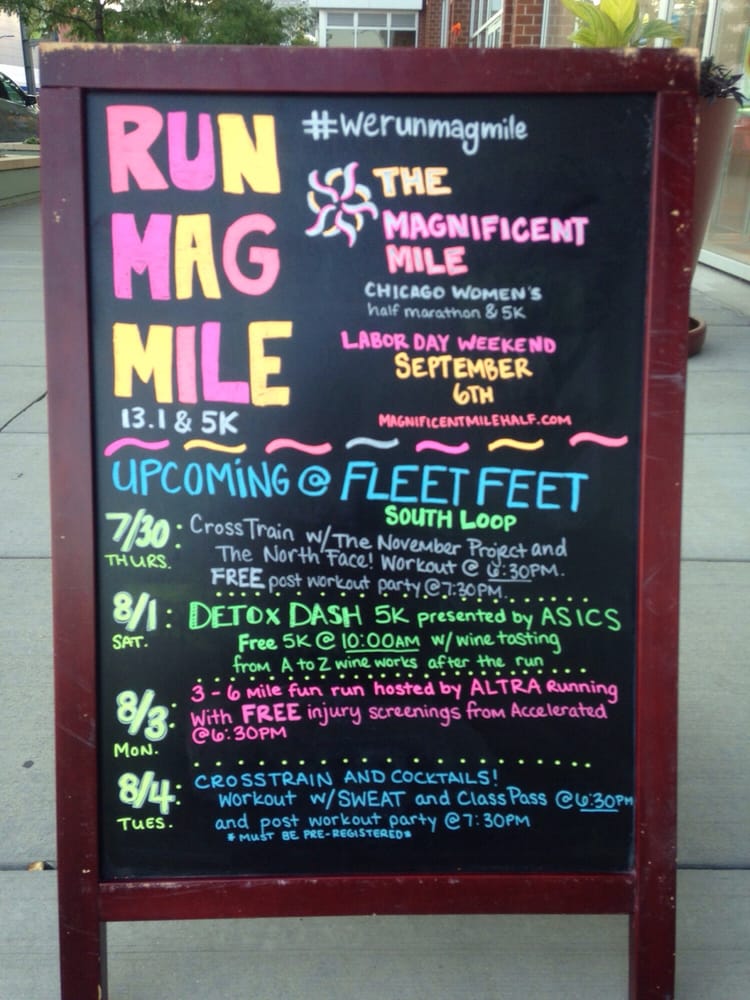 RUN
MAG
MILE
13.1 & 5K
#werunmagmile
THE
MAGNIFICENT
MILE
CHICAGO WOMEN'S
half marathon & 5K
LABOR DAY WEEKEND
SEPTEMBER
6TH
MAGNIFICENTMILEHALF.COM
UPCOMING @ FLEET FEET
SOUTH LOOP
7/30: CrossTrain w/The November Project and
THURS. The North Face! Workout @ 6:30PM.
FREE post workout party @ 7:30PM
8/1: DETOX DASH 5K presented by ASICS
SAT. Free 5K @ 10:00AM w/ wine tasting
from A to Z wine works after the run
8/3: 3-6 Mile fun run hosted by ALTRA Running
With FREE injury screenings from Accelerated
MON. @6:30PM
8/4: CROSSTRAIN AND COCKTAILS!
Workout w/SWEAT and ClassPass @6:30PM
TUES. and post workout party @7:30PM
*MUST BE PRE-REGISTERED*